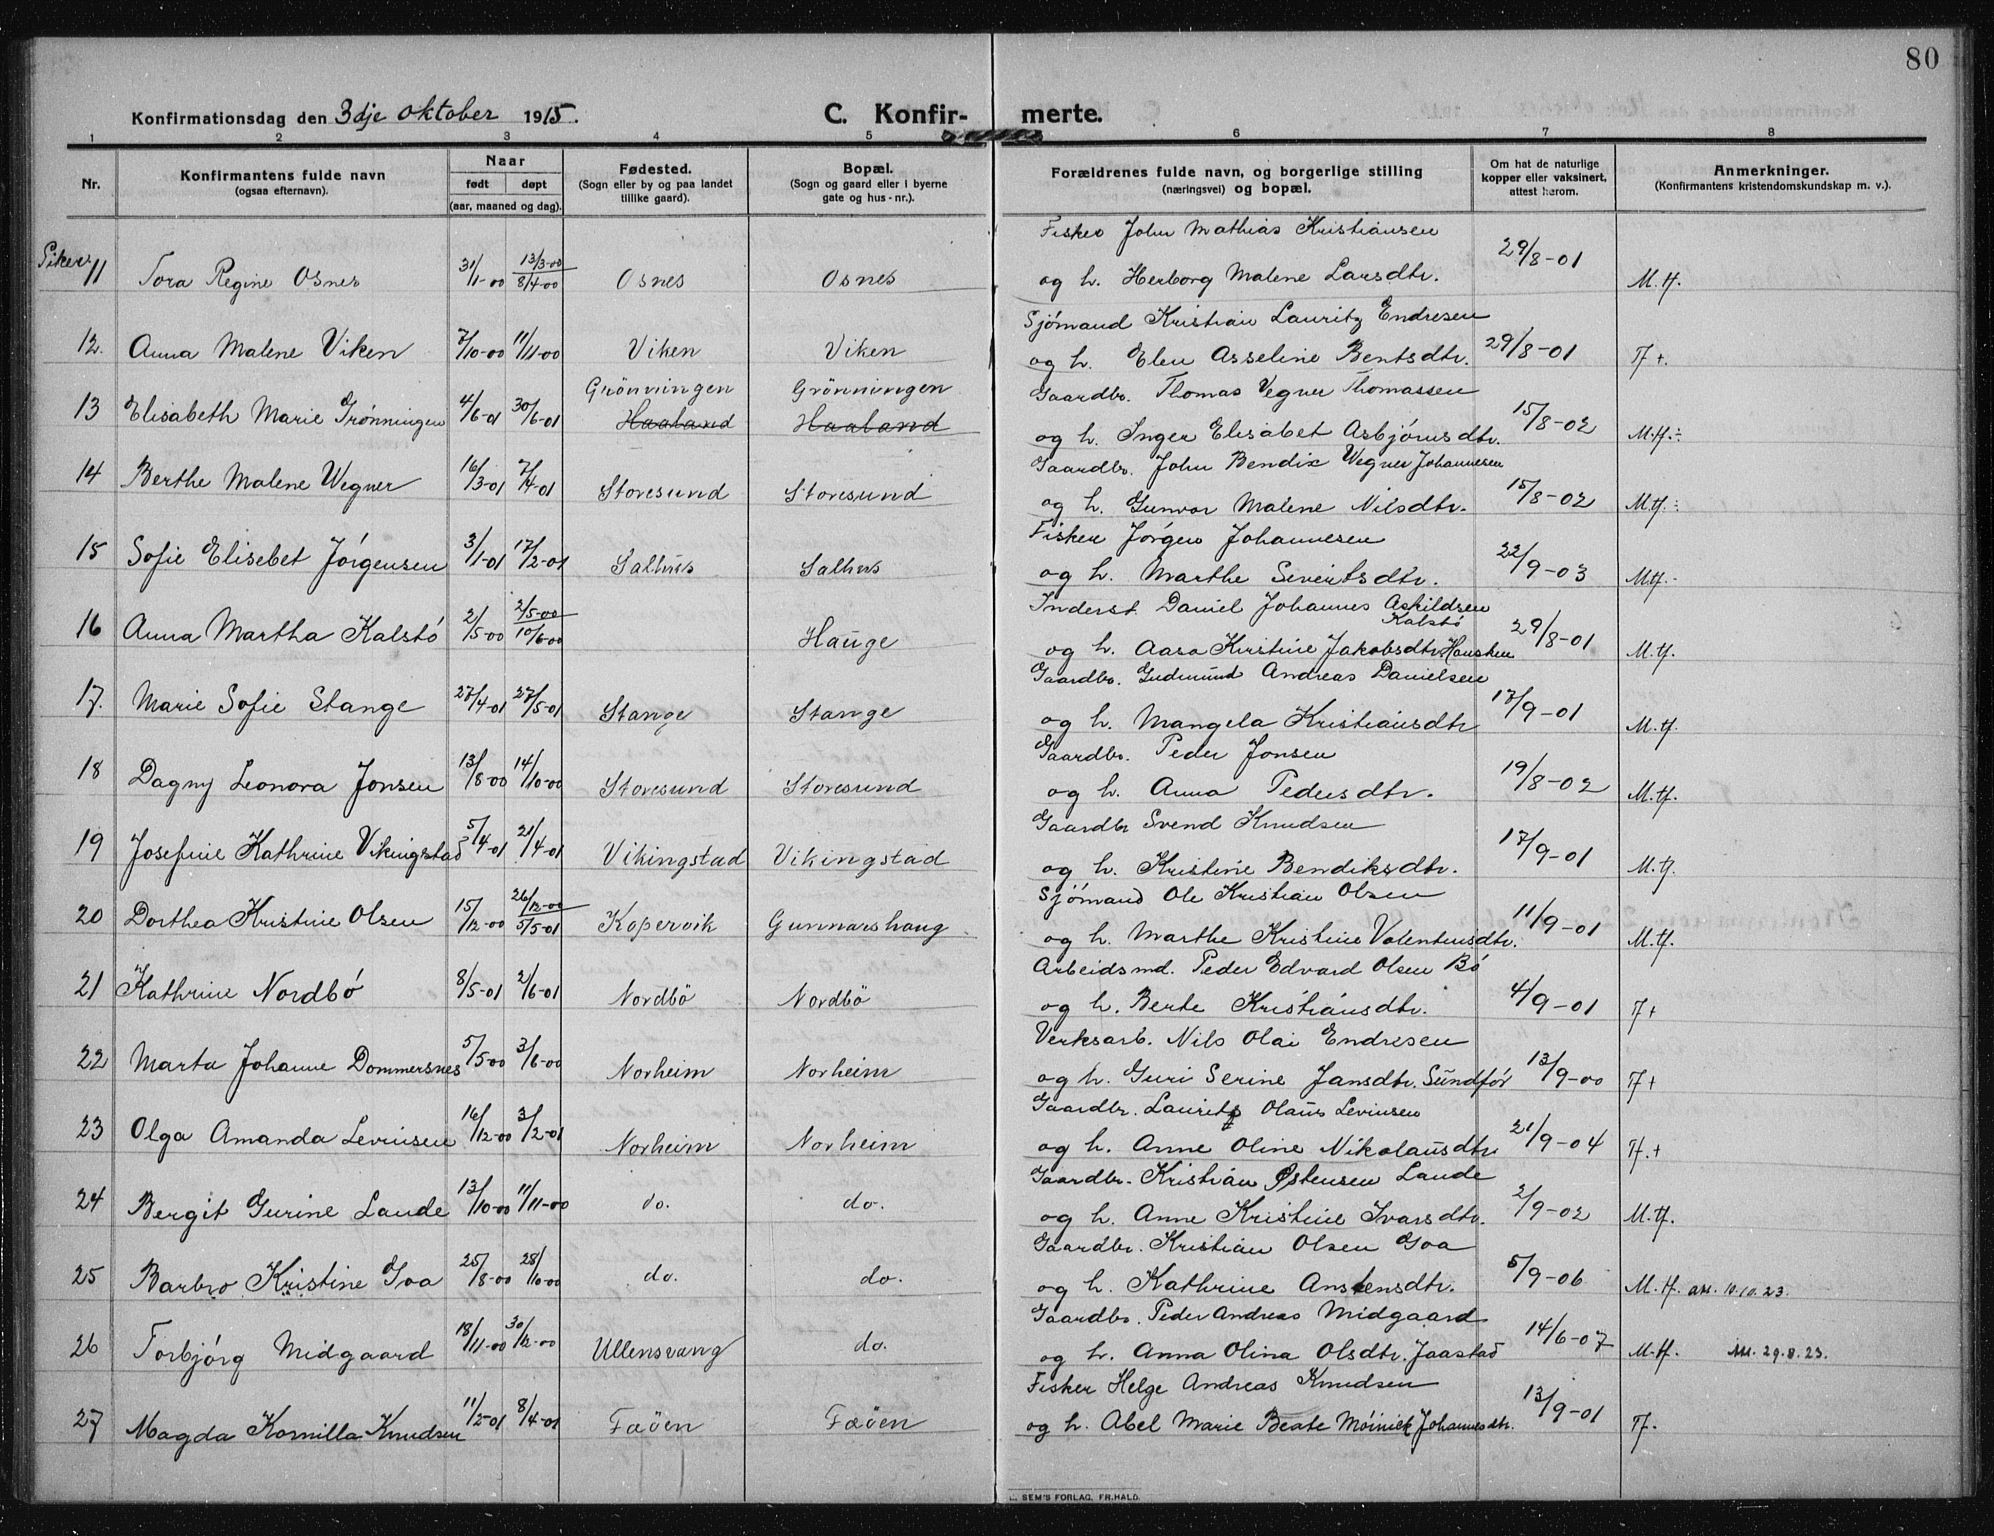 80
Konfirmationsdag den 3dje oktober 1915.
C. Konfir- merte.
1 2 3 4 5 6 7 8
Nr.
Konfirmantens fulde navn
(ogsaa efternavn).
Naar
født døpt
(aar, maaned og dag).
Fødested.
(Sogn eller by og paa landet
tillike gaard).
Bopæl.
(Sogn og gaard eller i byerne
gate og hus-nr.).
Forældrenes fulde navn, og borgerlige stilling
(næringsvei) og bopæl.
Om hat de naturlige
kopper eller vaksinert,
attest herom.
Anmerkninger.
(Konfirmantens kristendomskundskap m. v.).
Fisker John Mathias Kristiansen
Piker. 11 Tora Regine Osnes 31/1-00 13/3-00 8/4-00 Osnes Osnes og h. Herborg Malene Larsdtr. 29/8-01 M.tf.
Sjömand Kristian Lauritz Endresen
12. Anna Malene Viken 7/10-00 11/11-00 Viken Viken og h. Elen Asseline Bentsdtr. 29/8-01 Tf+.
Grönningen Grönningen Gaardbr. Thomas Vegner Thomassen
13 Elisabeth Marie Grønningen 4/6-01 30/6-01 Haaland Haaland og h. Inger Elisabet Asbjörnsdtr. 15/8-02 M.tf.÷
Gaardbr. John Bendix Vegner Johannesen
14 Berthe Malene Wegner 16/3-01 7/4-01 Storesund Storesund og h. Gunvor Malene Nilsdtr. 15/8-02 M.tf.÷
Fisker Jörgen Johannesen
15 Sofie Elisebet Jörgensen 3/1-01 17/2-01 Salhus Salhus og h. Marthe Sivertsdtr. 22/9-03 Mtf.-
Inderst. Daniel Johannes Askildsen
Kalstö
16 Anna Martha Kalstö 2/5-00 2/5-00 10/6-00 Hauge og h. Aasa Kristine Jakobsdtr. Hausken 29/8-01 M.tf.
Gaardbr. Gudmund Andreas Danielsen
17. Marie Sofie Stange 27/4-01 27/5-01 Stange Stange og h. Mangela Kristiansdtr 17/9-01 M.tf.
Gaardbr. Peder Jonsen
18 Dagny Leonora Jonsen 13/8-00 14/10-00 Storesund Storesund og h. Anna Pedersdtr. 19/8-02 M.tf.
Gaardbr Svend Knudsen
19 Josefine Kathrine Vikingstad 5/4-01 21/4-01 Vikingstad Vikingstad og h. Kristine Bendiksdtr. 17/9-01 M.tf.
Sjömand Ole Kristian Olsen
20 Dorthea Kristine Olsen 15/12-00 26/12-00 5/5-01 Kopervik Gunnarshaug og h. Marthe Kristine Valentinsdtr. 11/9-01 M.tf.
Arbeidsmd. Peder Edvard Olsen Bö
21 Kathrine Nordbö 8/5-01 2/6-01 Nordbö Nordbö og h. Berte Kristiansdtr. 4/9-01 Tf+
Verksarb. Nils Olai Endresen
22 Marta Johanne Dommersnes 5/5-00 3/6-00 Norheim Norheim og h. Guri Serine Jansdtr. Sundför 13/9-00 Tf+
Gaardbr. Lauritz Olaus Levinsen
23 Olga Amanda Levinsen 16/12-00 3/2-01 Norheim Norheim og h. Anne Oline Nikolausdtr 21/9-04 Tf.+
Gaardbr. Kristian Østensen Lande
24 Bergit Gurine Lande 13/10-00 11/11-00 do. do. og h. Anne Kristine Ivarsdtr. 2/9-02 M.tf.
Gaardbr. Kristian Olsen Goa
25 Barbro Kristine Goa 25/8-00 28/10-00 do. do. og h. Kathrine Anstensdtr. 5/9-06 M.tf. att. 10.10.23.
Gaardbr. Peder Andreas Midgaard
26 Torbjörg Midgaard 18/11-00 30/12-00 Ullensvang do. og h. Anna Olina Olsdtr. Jaastad 14/6-07 M.tf. att. 29.8.23.
Fisker Helge Andreas Knudsen
27 Magda Kornilla Knudsen 11/2-01 8/4-01 Fæöen Fæöen og h. Abel Marie Beate Möinick Johannesdtr. 13/9-01 Tf.
SEM'S FORLAG, FR.HALD.